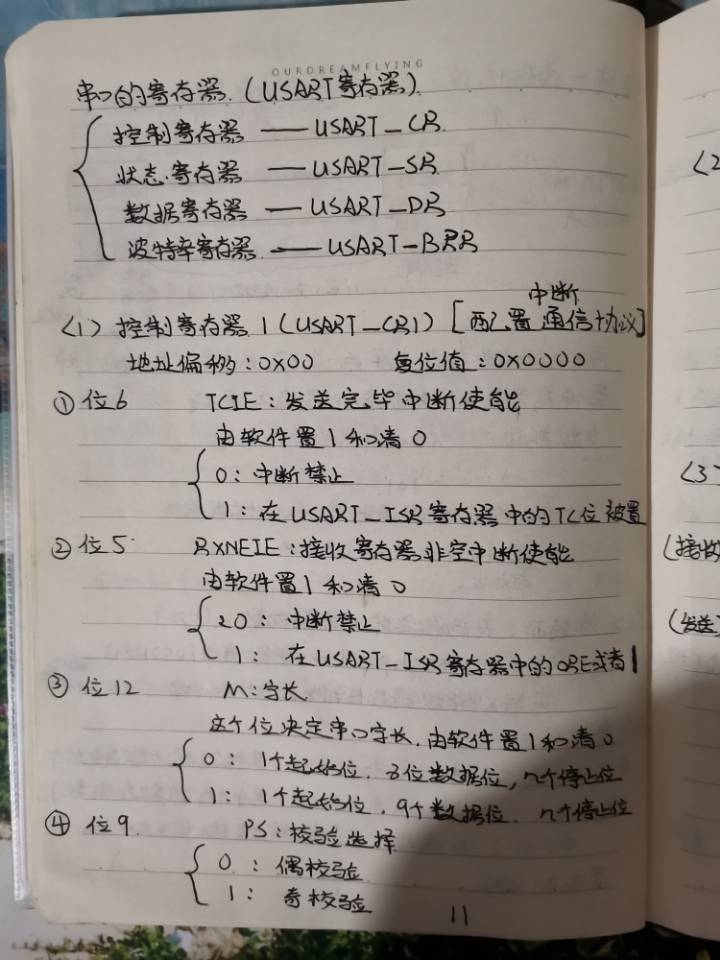 OURDREAMFLYING
串口的寄存器.(USART寄存器).
控制寄存器 —— USART_CR.
状态寄存器 —— USART_SR.
数据寄存器 —— USART_DR
波特率寄存器 —— USART_BRR
中断
<1> 控制寄存器1(USART_CR1) [配置通信协议]
地址偏移:0x00 复位值:0x0000
① 位6 TCIE:发送完毕中断使能
由软件置1和清0
0:中断禁止
1:在USART_ISR寄存器中的TC位被置
② 位5 RXNEIE:接收寄存器非空中断使能
由软件置1和清0
0:中断禁止
1:在USART_ISR寄存器中的ORE或者1
③ 位12 M:字长
这个位决定串口字长.由软件置1和清0
0:1个起始位.8位数据位,n个停止位
1:1个起始位.9个数据位.n个停止位
④ 位9. PS:校验选择
0:偶校验
1:奇校验
11
<2
<3>
(接收
(发送)